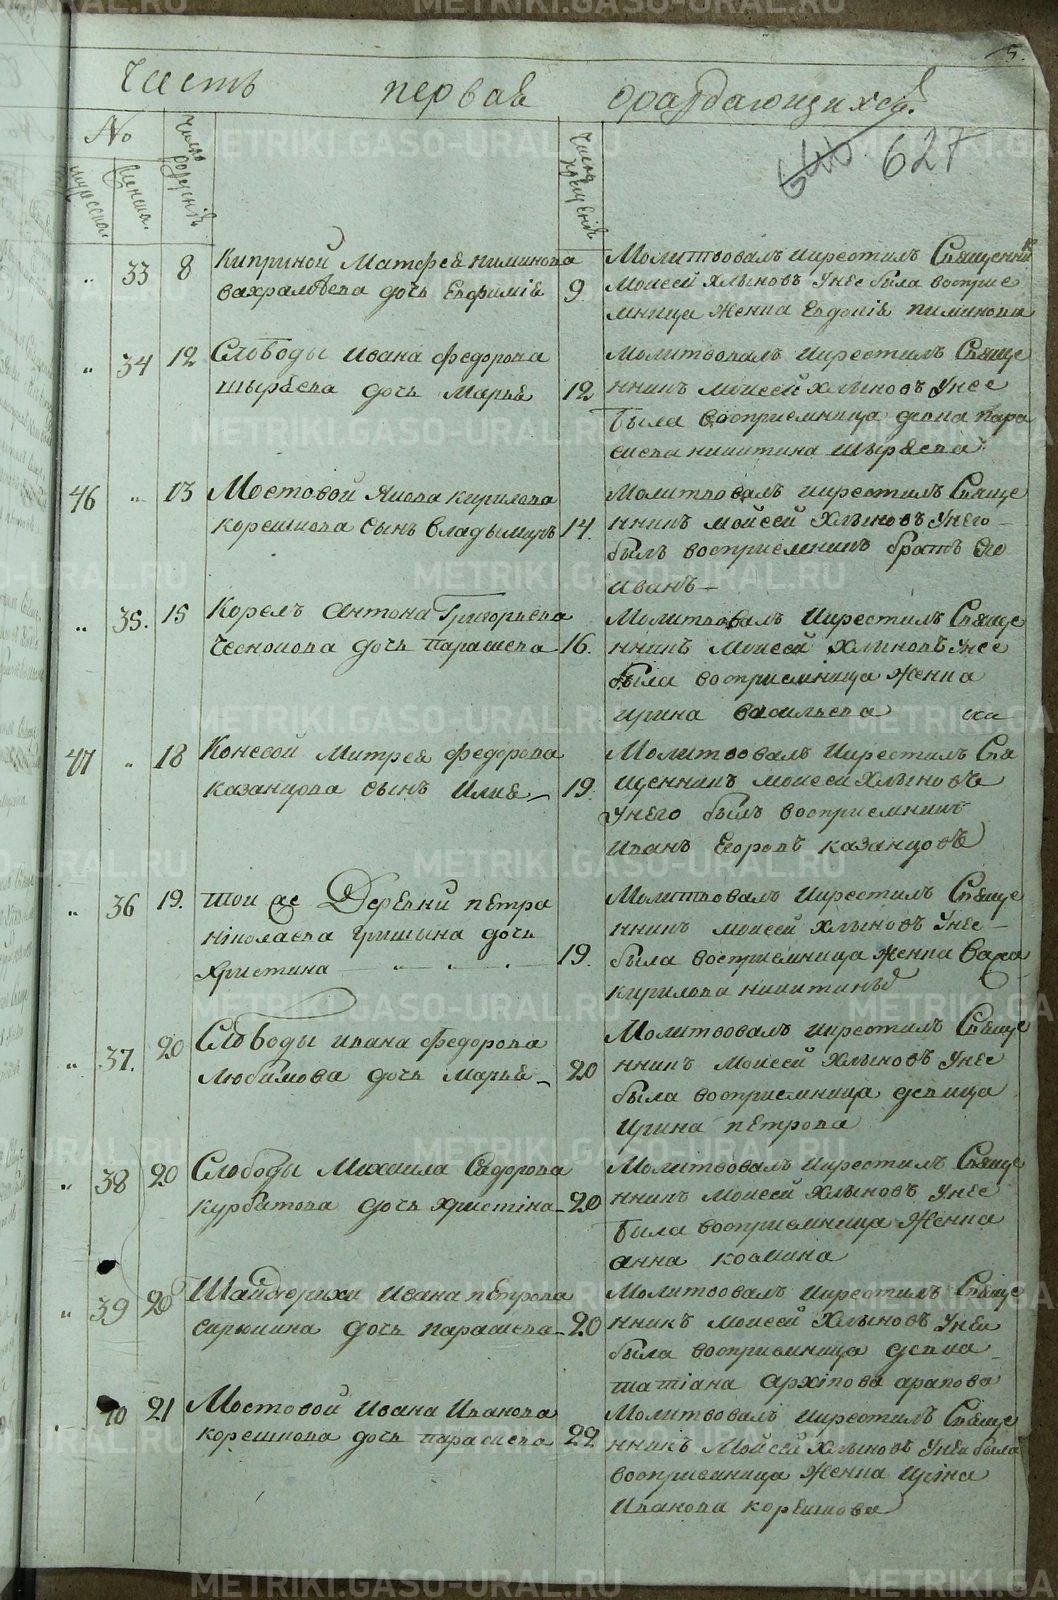 5.
Часть первая ораждающихся.
640 627
№
мужеска.
женска.
Число рождения.
Число крещения
" 33 8 Киприной Матфея пиминова
вахрамѣева дочь Евфимiя 9
Молитвовалъ икрестилъ Священник
Моисей Хлыновъ Унее была восприе
мница женка Евдокiя пиминова
" 34 12 Слободы ивана федорова
шыряева дочь Марья 12
Молитвовалъ икрестилъ Свяще
нникъ Моисей Хлыновъ Унее
была восприемница девка пара
скева никитина шыряева
46 " 13 Мостовой Якова кирилова
корешкова сынъ владымиръ 14.
Молитвовалъ икрестилъ Свяще
нникъ мойсей Хлыновъ Унего
былъ восприемникъ братъ Его
иванъ
" 35. 15 Корелъ Антона Григорьева
Чеснокова дочь Параскева 16.
Молитвовалъ икрестилъ Свяще
нникъ Моисей Хлыновъ Унее
была восприемница женка
ирина васильева
47 " 18 Коневой Митрея федорова
казанцова сынъ Илия 19.
Молитвовалъ икрестилъ Свя
щенникъ моисей Хлыновъ
Унего былъ восприемникъ
иванъ Егоровъ казанцовъ
" 36 19. той же Деревни петра
нiколаева Гришына дочь
христина 19.
Молитвовалъ икрестилъ Свяще
нникъ моисей хлыновъ Унее
была восприемница женка
кирилова
" 37. 20 Слободы ивана федорова
Любимова дочь марья 20
Молитвовалъ икрестилъ Свяще
нникъ Моисей Хлыновъ Унее
была восприемница девица
ирина петрова
" 38 20 Слободы Михаила Федорова
курбатова дочь христiна 20
Молитвовалъ икрестилъ Свяще
нникъ Моисей Хлыновъ Унее
была восприемница Женка
анна козмина
" 39 20 Шайдурихи ивана петрова
дочь параскева 20
Молитвовалъ икрестилъ Свяще
нникъ Моисей Хлыновъ Унеи
была восприемница девка
татiана архiпова арапова
40 21 Мостовой ивана иванова
корешкова дочь параскева 22
Молитвовалъ икрестилъ Свяще
нникъ Мойсей Хлыновъ Унеи была
восприемница женка ирiна
иванова корешкова
METRIKI.GASO-URAL.RU